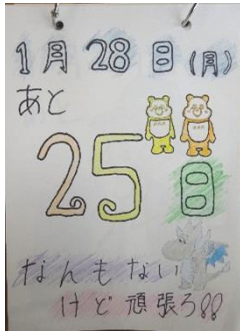 1月28日(月)
あと
25日
なんもない
けど頑張ろ!!